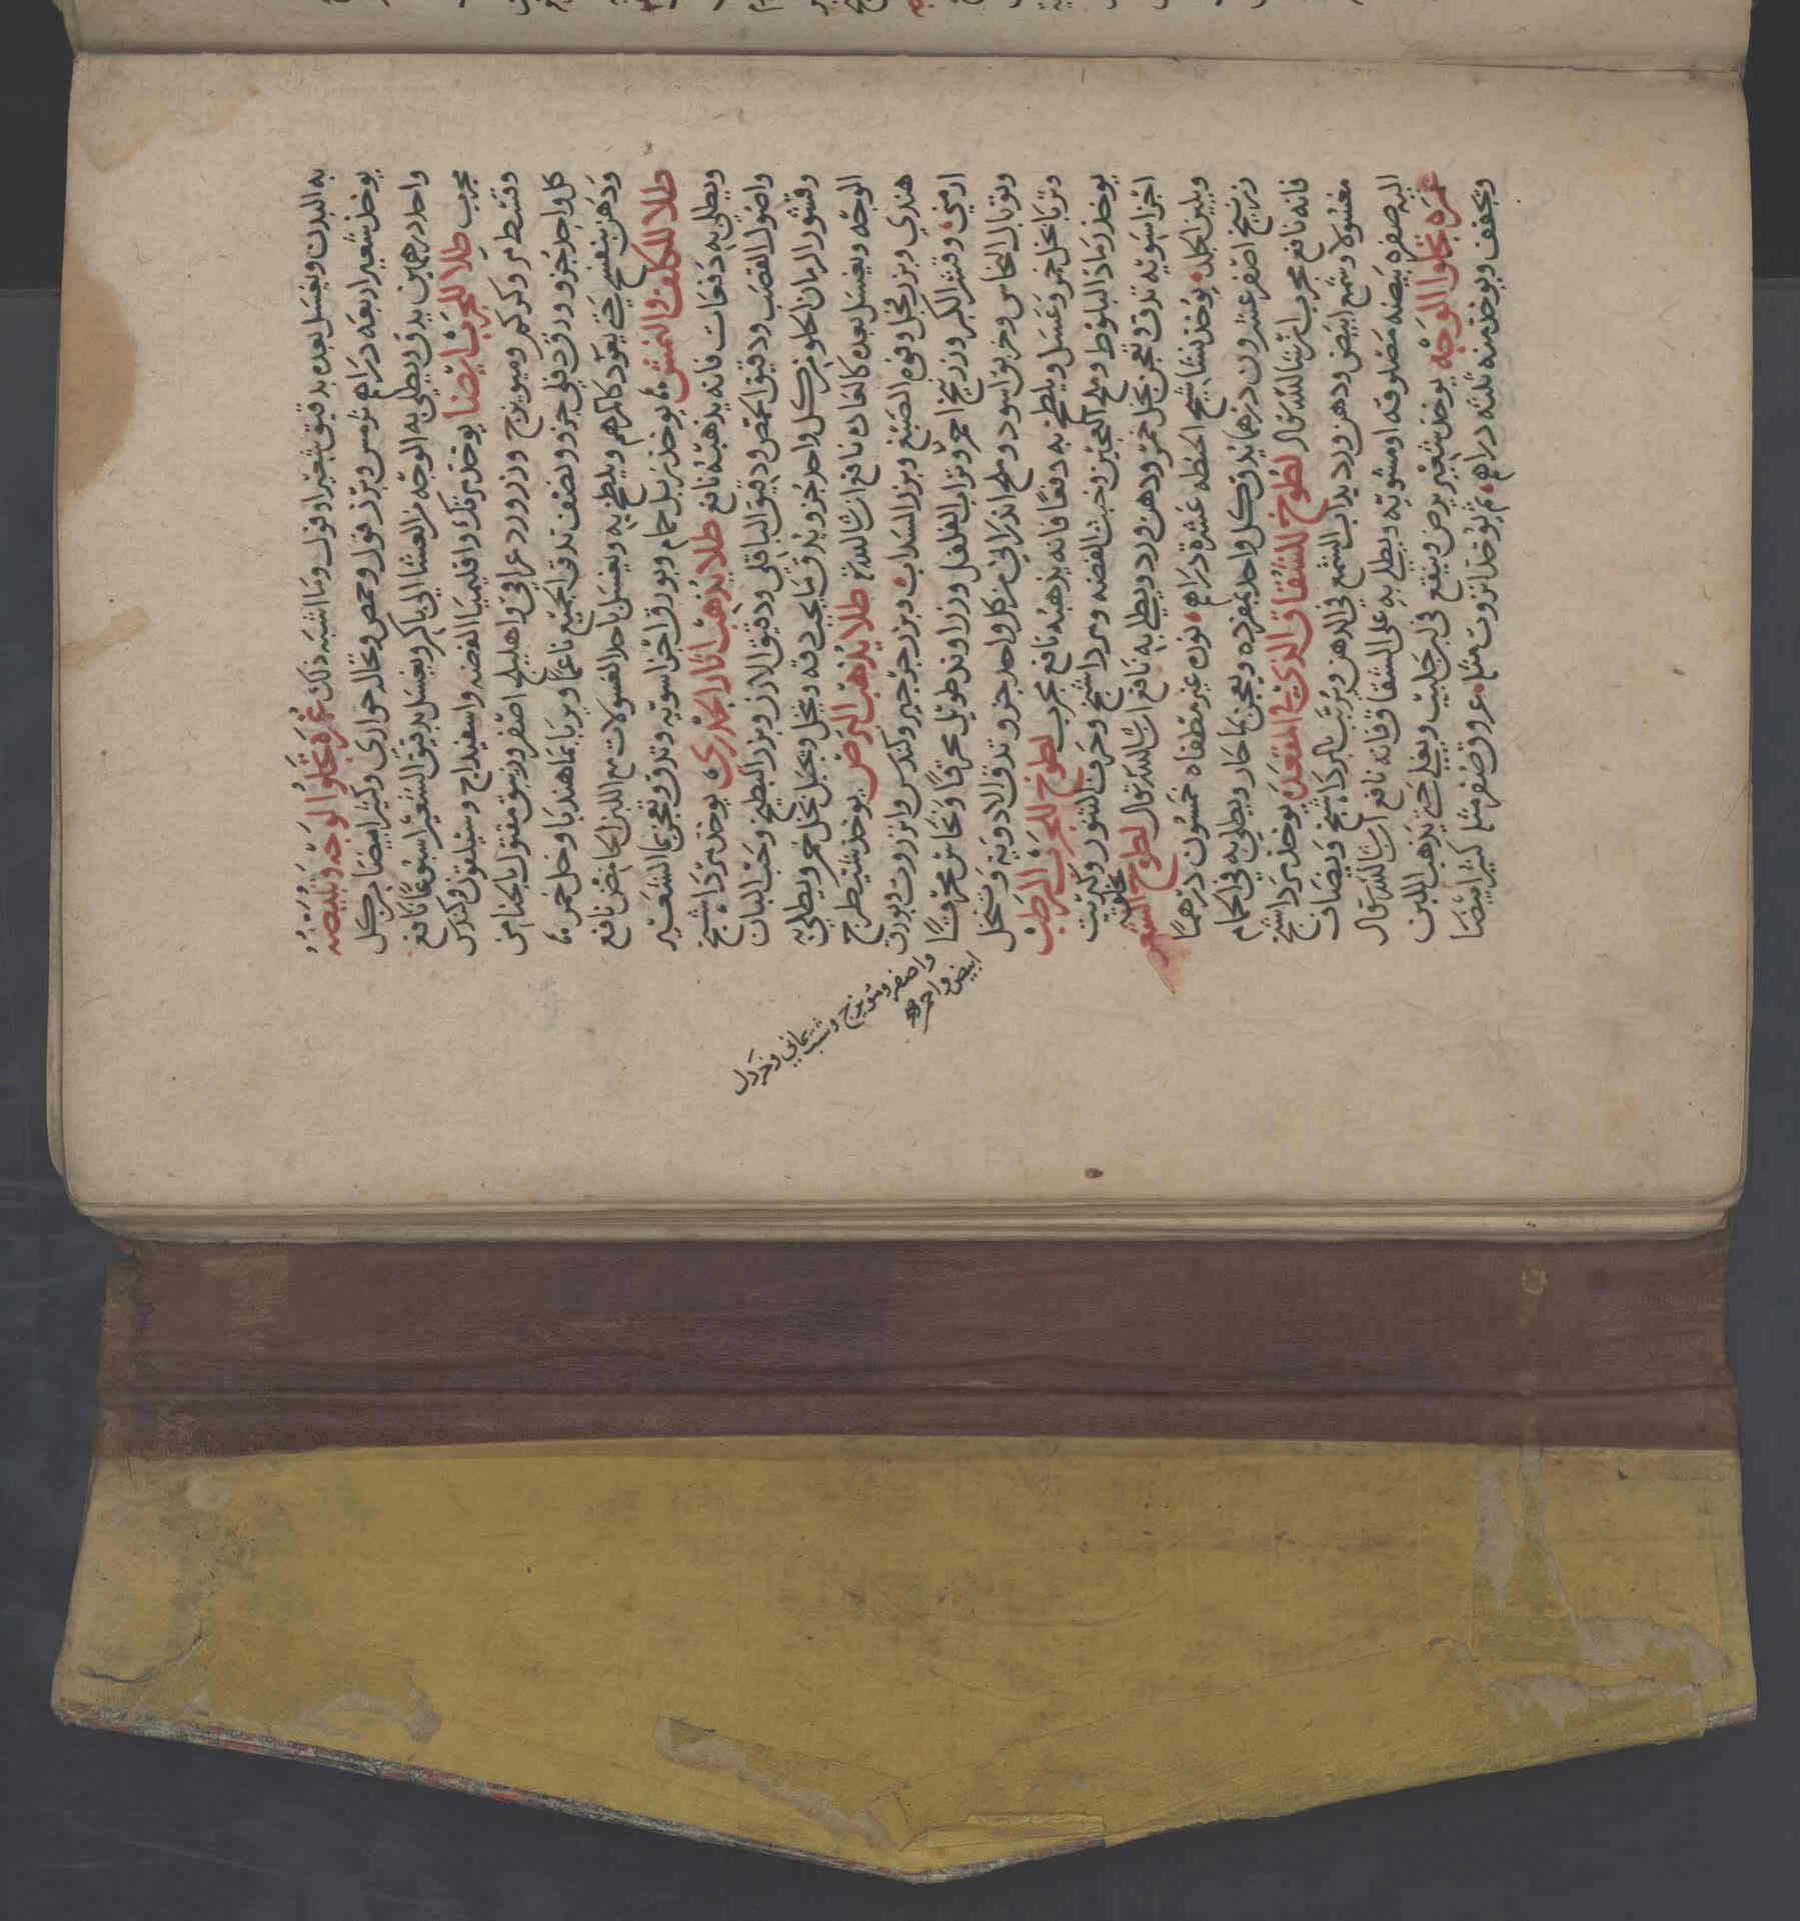 به البدن ويغسل بعده بدقيق شعير او فول وما اشبه ذلك غمرة تجلوا الوجه وتبيضه
يوخذ شعير اربعه دراهم ترمس وبزر فول وحمص ونخاله حوارى وكثيرا بيضا من كل
واحد درهمين يدق ويطلى به الوجه من العشا الى باكر ويغسل بدقيق الشعير اسبوعا نافع
مجرب طلا للجرب ايضا يوخذ مرتك واقليميا الفضه واسفيداج وسيلقون وكندس
وقسط مر وكركم وميويزج وزرورد عراقي واهليلج اصفر وزيبق مقتول بالحنا من
كل واحد جزو وورق دفلي جزو ونصف تدق الجميع ناعما ويربا بما هندبا وخل خمر
ودهن بنفسج حتى يعود كالمرهم ويلطخ به ويغسل باحد الغسولات مع اللبن الحامض نافع
طلا للكلف والنمش يوخذ زبل حمام وبورق اجزا سويه وتدق وتعجن بما الشعير
ويطلى به دفعات فانه يذهبه نافع طلا يذهب اثار الجدري يوخذ مرداسنج
واصول القصب ودقيق الحمص ودقيق الباقلي ودقيق الارز وبزر البطيخ وحب البان
وقشور الرمان الحلو من كل واحد جزو يدق ما يجب دقه وينخل ويجبل بخل خمر ويطلى به
الوجه ويغسل بعده كالعاده نافع ان شا الله طلا يذهب البرص يوخذ شيطرج
هندي وبزر فجل وفوه الصبغ وبزر السداب وبزر جرجير وكندس وانزروت وبورق
ارمني وقشر الكبر وزرنيخ احمر وتراب الفلفل وزراوند طويل محرقا ونحاس محرقا
وتوبال النحاس وخربق اسود وملح اندراني من كل واحد جزو تدق الادوية وتنخل
وتربا بخل خمر وعسل ويلطخ به دفعا فانه يذهبه نافع مجرب لطوخ للجرب الرطب
يوخذ رماد البلوط وملح العجين وخبث الفضه ومرداسنج وخزف التنور وكبريت
اجزا سويه تدق وتعجن بخل خمر ودهن ورد ويطلى به نافع ان شا الله تعالى لطوخ الشعر
ويلين الجلد يوخذ نشاستج الحنطه عشرة دراهم نوره غير مطفاه خمسون درهما
زرنيخ اصفر عشرون درهما يدق كل واحد بمفرده ويعجن بما حار ويطلى به في الحمام
فانه نافع مجرب ان شا الله تعالى لطوخ للشقاق الذي في المقعده يوخذ مرداسنج
مغسولا وشمع ابيض ودهن ورد يداب الشمع في الدهن ويربب بالمرداسنج ويضاف
اليه صفره بيضه مصلوقه او مشويه ويطلى به على الشقاق فانه نافع ان شا الله تعالى
غمره تجلوا الوجه يوخذ شعير يرض وينقع في لبن حليب ويغلى حتى يذهب اللبن
ويجفف ويوخذ منه ثلثه دراهم ثم يوخذ انزروت مثله عروق صفر مثله كثيرا بيضا
ابيض واحمر
واصفر وميويزج وشب يماني وخردل